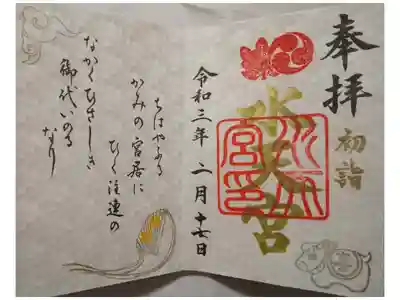 奉拝
初詣
水天宮
水天宮印
令和三年二月十七日
ちはやふる
かみの宮居に
ひく注連の
なかくひさしき
御代いのる
なり